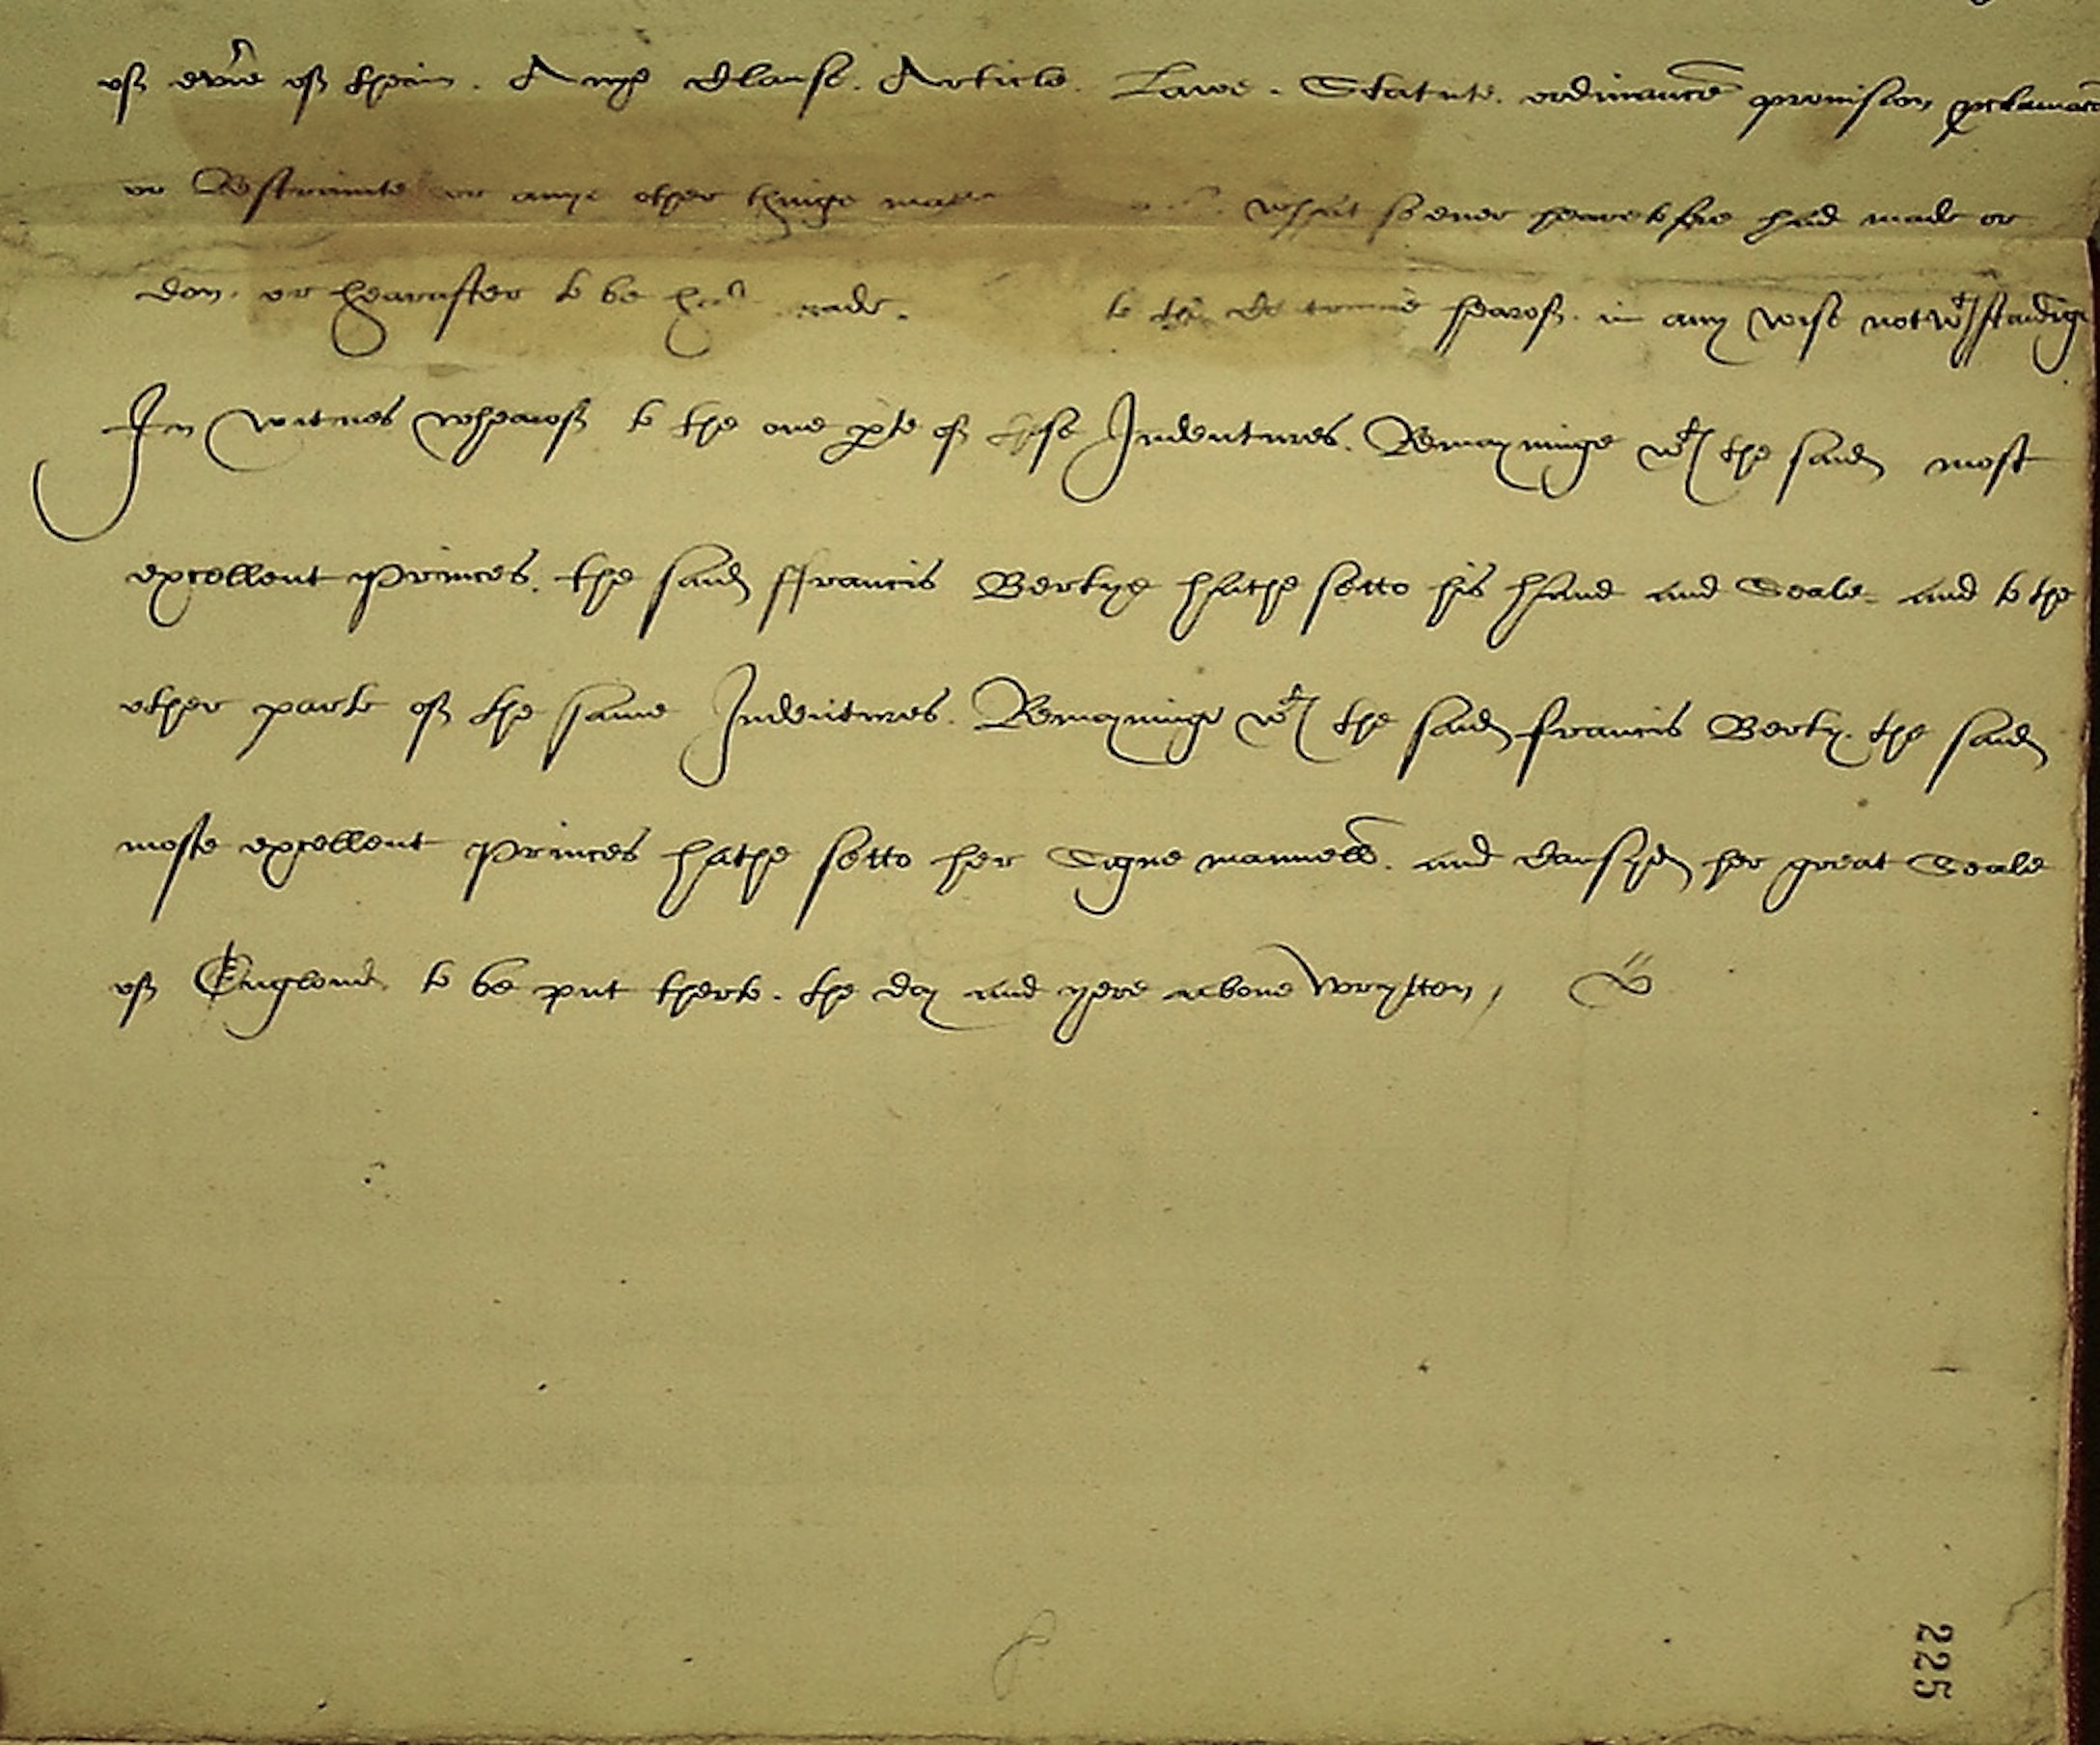 of ev'ie of theim . Anye Clause . Article . Lawe . Statute . ordinaunce provision pclamac
or Restrainte or anye other thinge what so ever hearetofore had made or
don . or hearafter to be had made . to the hearof . in any wise notwtstandige
In witnes whearof to the one pte of these Indentures . Remayninge wt the said most
excellent Princes . the said ffrancis Bertye hathe setto his hande and Seale . and to the
other parte of the same Indentures . Remayninge wt the said francis Berty . the said
moste excellent Princes hathe setto her Signe manuell . and causyd her great Seale
of Englond to be put therto . the day and yere above wrytten /
225